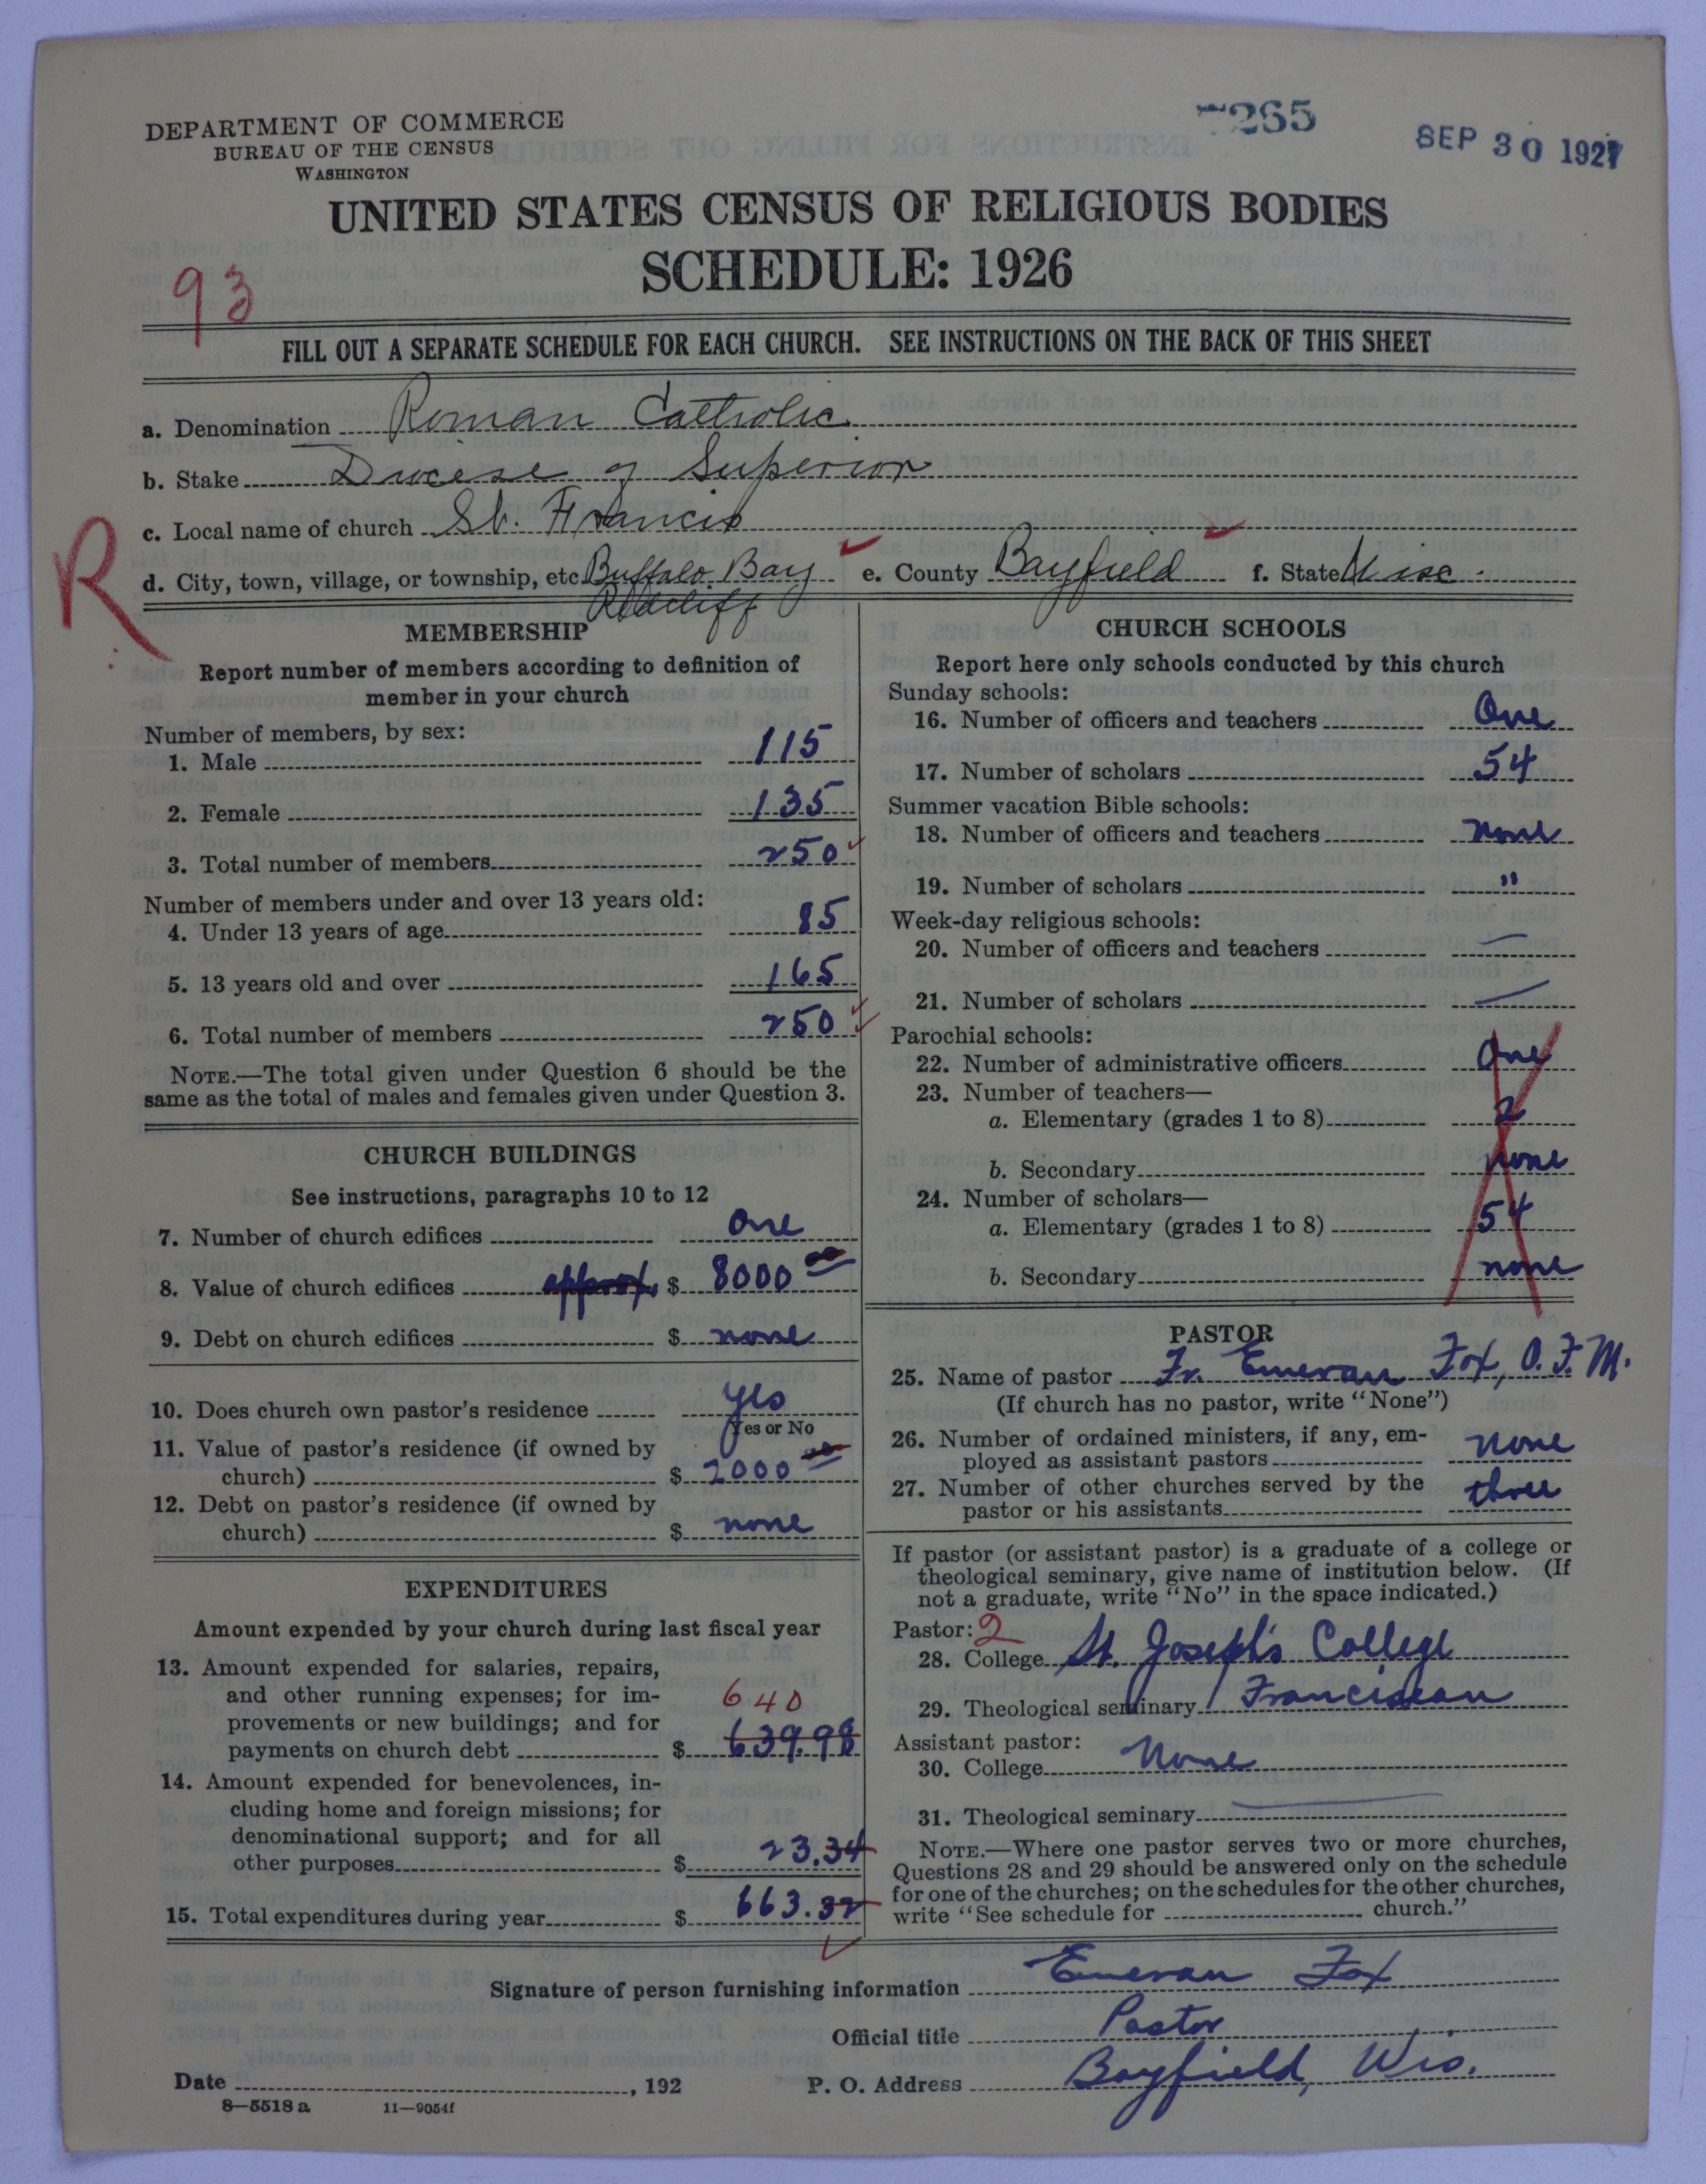 DEPARTMENT OF COMMERCE
BUREAU OF THE CENSUS
WASHINGTON
7265
SEP 30 1927
UNITED STATES CENSUS OF RELIGIOUS BODIES
SCHEDULE: 1926
93
FILL OUT A SEPARATE SCHEDULE FOR EACH CHURCH. SEE INSTRUCTIONS ON THE BACK OF THIS SHEET
a. Denomination Roman Catholic
b. Stake Diocese of Superior
c. Local name of church St. Francis
R
d. City, town, village, or township, etc. Buffalo Bay e. County Bayfield f. State Wisc.
Redcliff
MEMBERSHIP
Report number of members according to definition of
member in your church
Number of members, by sex:
1. Male 115
2. Female 135
3. Total number of members 250
Number of members under and over 13 years old:
4. Under 13 years of age 85
5. 13 years old and over 165
6. Total number of members 250
NOTE.—The total given under Question 6 should be the
same as the total of males and females given under Question 3.
CHURCH BUILDINGS
See instructions, paragraphs 10 to 12
7. Number of church edifices One
8. Value of church edifices approx. $ 8000 00
9. Debt on church edifices $ none
10. Does church own pastor's residence yes
Yes or No
11. Value of pastor's residence (if owned by
church) $ 2000 00
12. Debt on pastor's residence (if owned by
church) $ none
EXPENDITURES
Amount expended by your church during last fiscal year
13. Amount expended for salaries, repairs,
and other running expenses; for im-
640
provements or new buildings; and for
payments on church debt $ 639.98
14. Amount expended for benevolences, in-
cluding home and foreign missions; for
denominational support; and for all
other purposes $ 23.34
15. Total expenditures during year $ 663.32
CHURCH SCHOOLS
Report here only schools conducted by this church
Sunday schools:
16. Number of officers and teachers One
17. Number of scholars 54
Summer vacation Bible schools:
18. Number of officers and teachers none
19. Number of scholars "
Week-day religious schools:
20. Number of officers and teachers —
21. Number of scholars —
Parochial schools:
22. Number of administrative officers One
23. Number of teachers—
a. Elementary (grades 1 to 8) 2
b. Secondary none
24. Number of scholars—
a. Elementary (grades 1 to 8) 54
b. Secondary none
PASTOR
25. Name of pastor Fr. Emeran Fox, O.F.M.
(If church has no pastor, write "None")
26. Number of ordained ministers, if any, em-
ployed as assistant pastors none
27. Number of other churches served by the
pastor or his assistants three
If pastor (or assistant pastor) is a graduate of a college or
theological seminary, give name of institution below. (If
not a graduate, write "No" in the space indicated.)
Pastor: 2
28. College St. Joseph's College
29. Theological seminary Franciscan
Assistant pastor:
30. College None
31. Theological seminary —
NOTE.—Where one pastor serves two or more churches,
Questions 28 and 29 should be answered only on the schedule
for one of the churches; on the schedules for the other churches,
write "See schedule for church."
Signature of person furnishing information Emeran Fox
Official title Pastor
Date , 192 P. O. Address Bayfield, Wis.
8—5518a 11—9054f